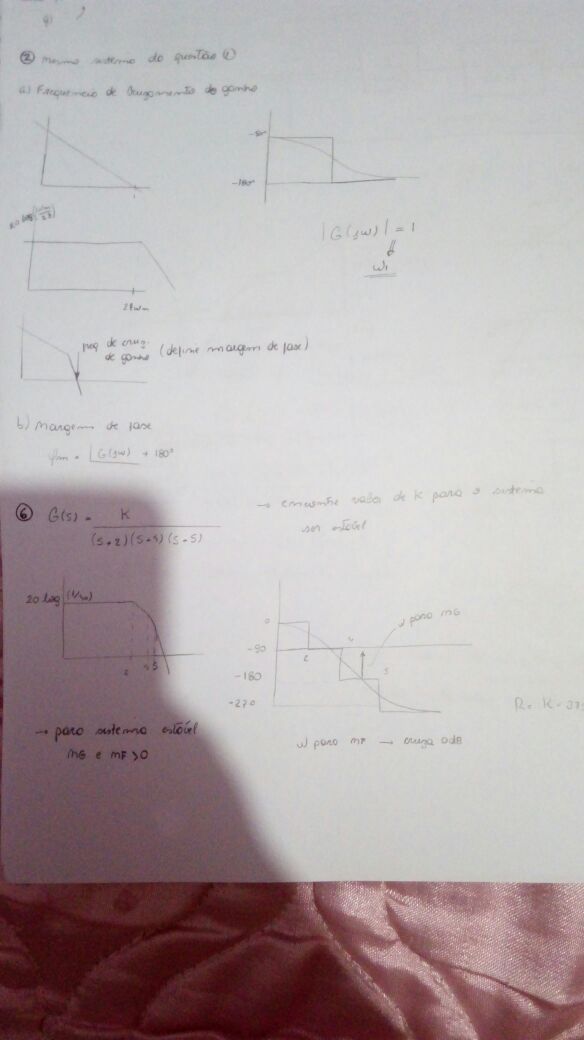 ② mesmo sistema do questão ①
a) Frequencia de Cruzamento do ganho
-90°
-180°
20 log
|G(jω)| = 1
⇓
ω₁
freq de cruz. de ganho (define margem de fase)
b) margem de fase
φm = ∠G(jω) + 180°
⑥ G(s) = K / (s+2)(s+4)(s+5)
→ encontre valor de K para o sistema
ser estável
20 log (1/40)
2 4 5
0
-90
-180
-270
2 4 5
ω para MG
R= K = 37
→ para sistema estável
MG e MF > 0
ω para MF → cruza 0dB